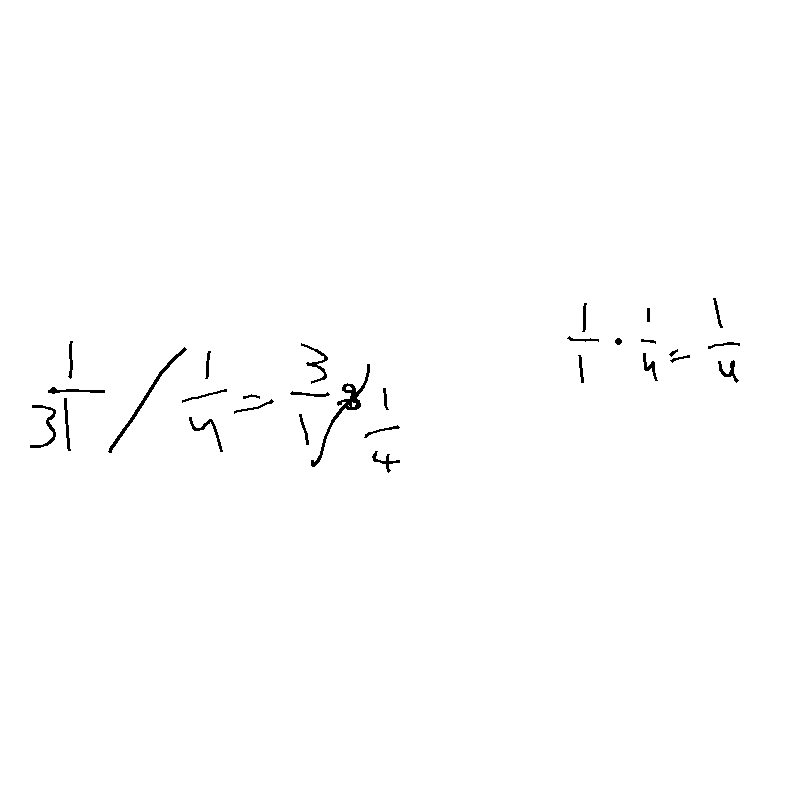 1/31 / 1/4 = 3/1 / 1/4
1/1 · 1/4 = 1/4